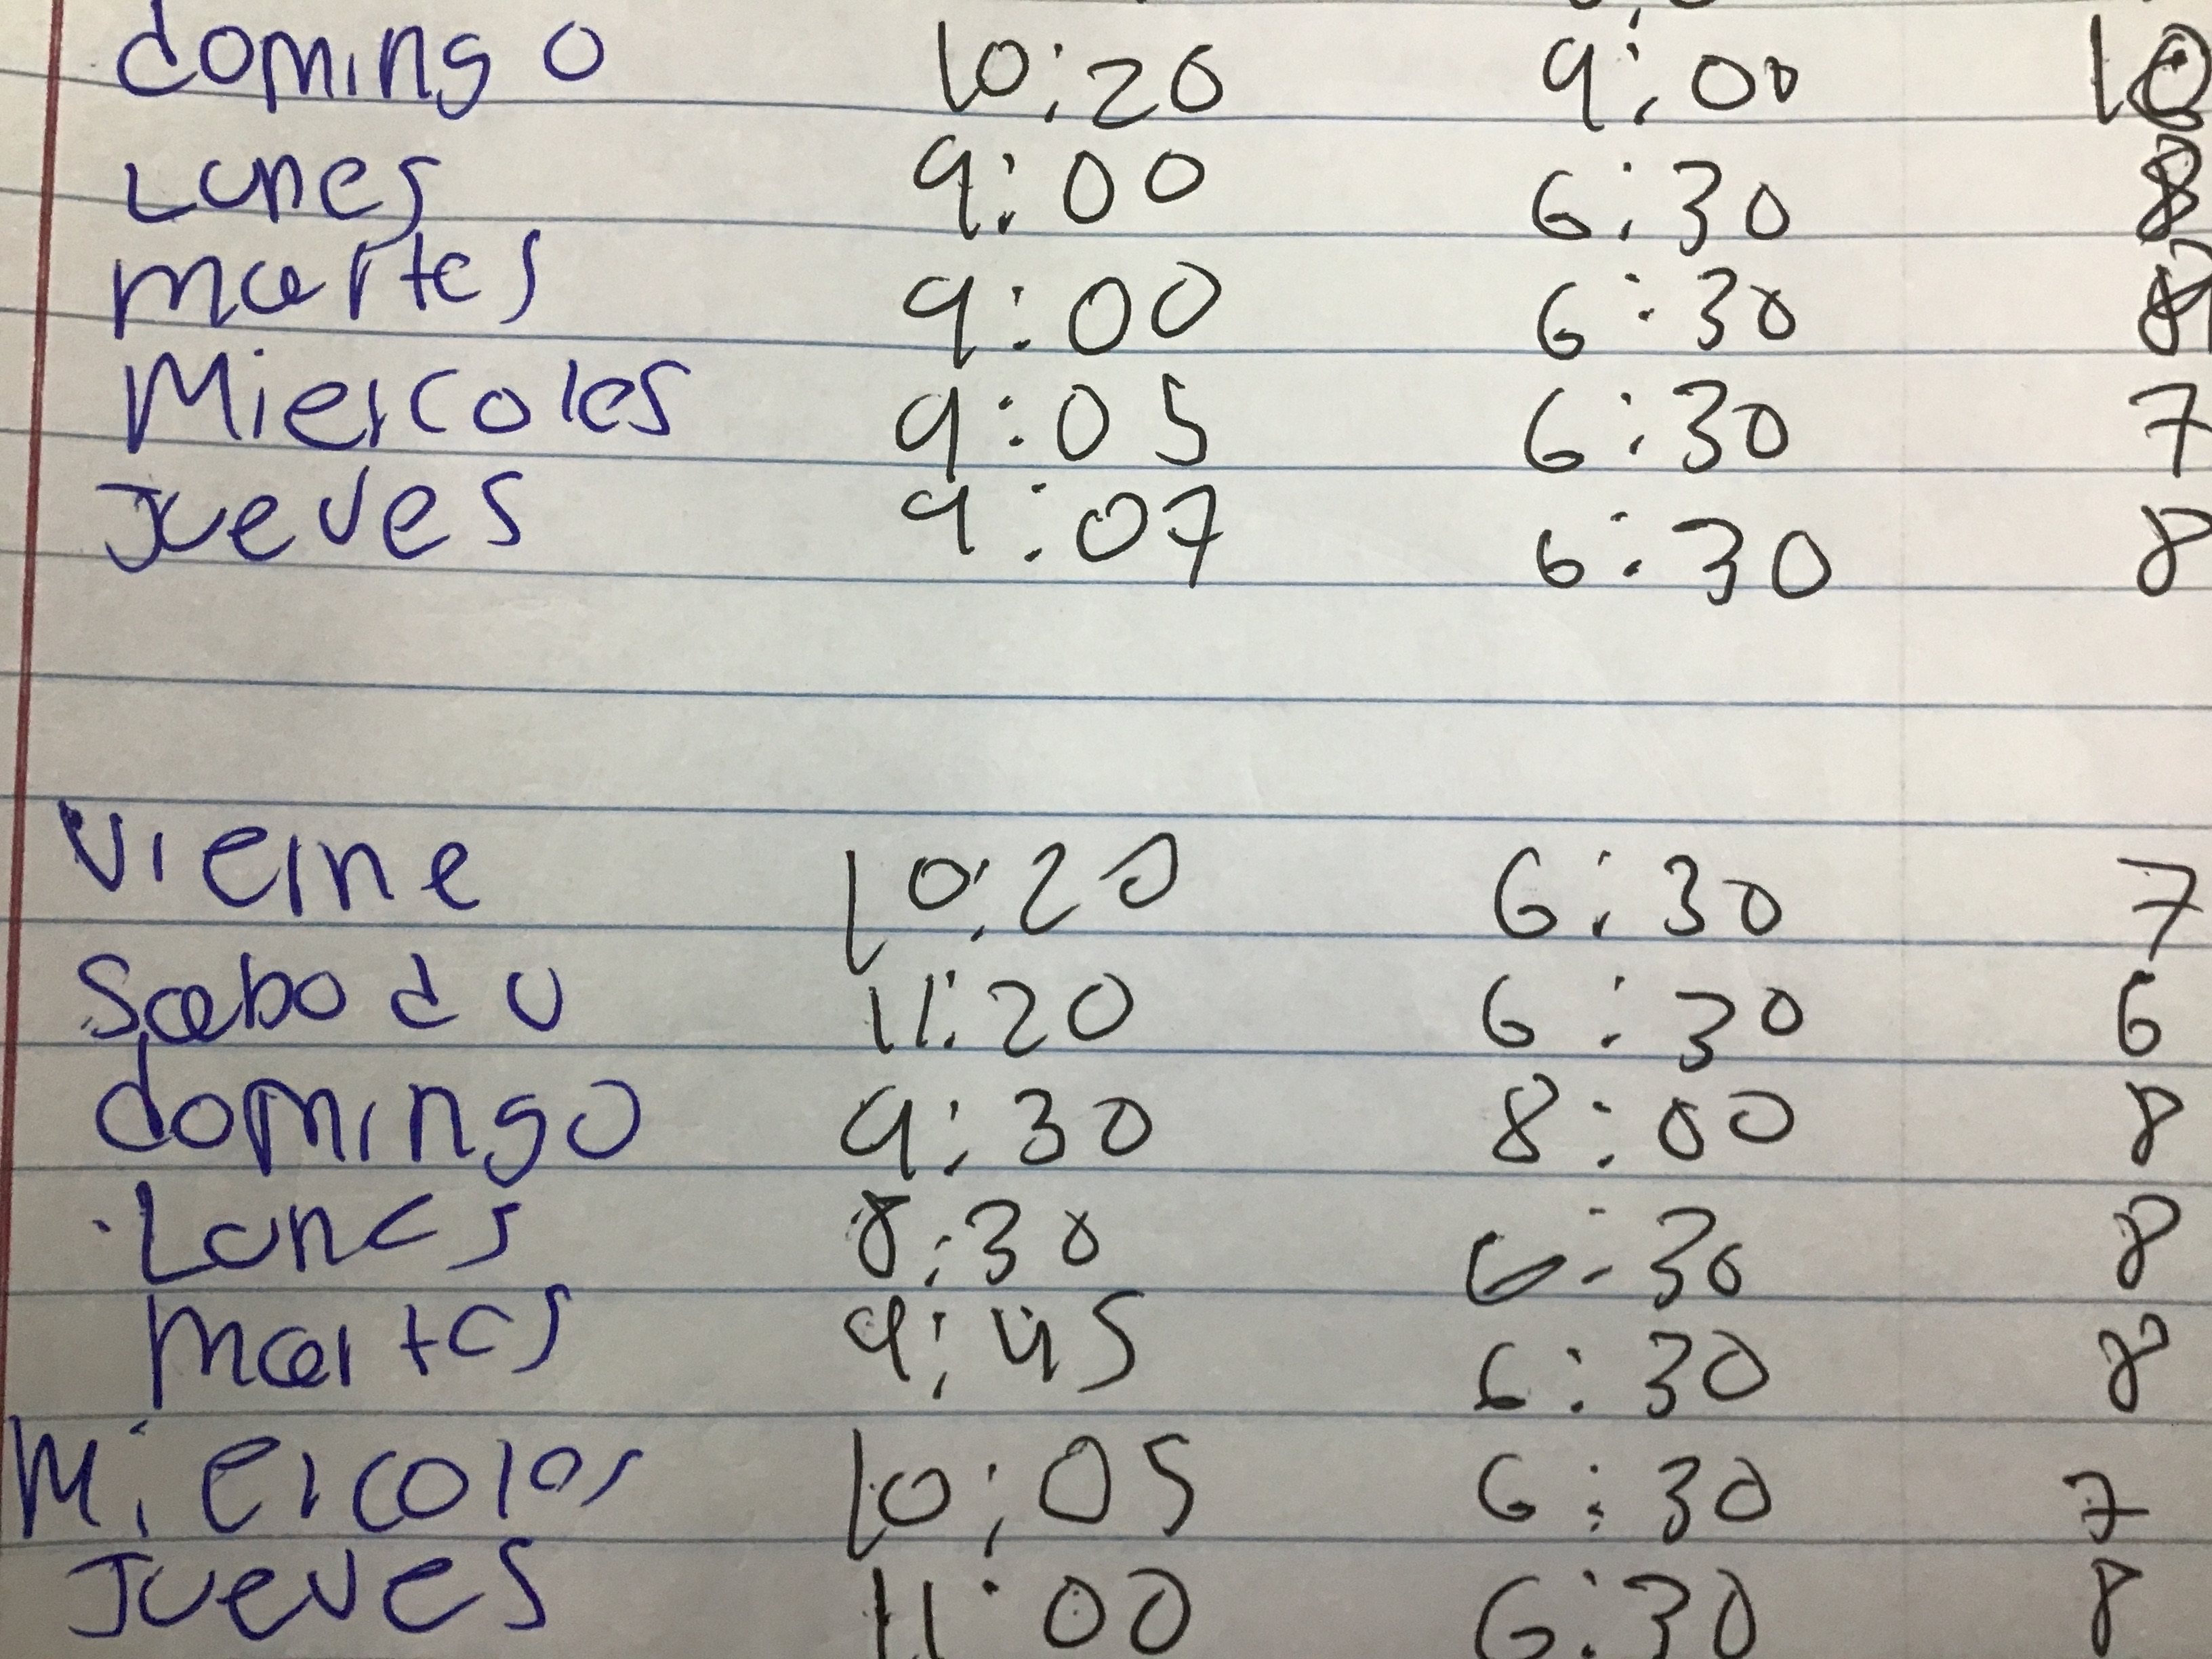 domingo 10:20 9:00 10
Lunes 9:00 6:30 8
martes 9:00 6:30 8
Miercoles 9:05 6:30 7
Jueves 9:07 6:30 8
Vierne 10:20 6:30 7
Sabodo 11:20 6:30 6
domingo 9:30 8:00 8
Lunes 8:30 6:30 8
martes 9:45 6:30 8
Miercoles 10:05 6:30 7
Jueves 11:00 6:30 8